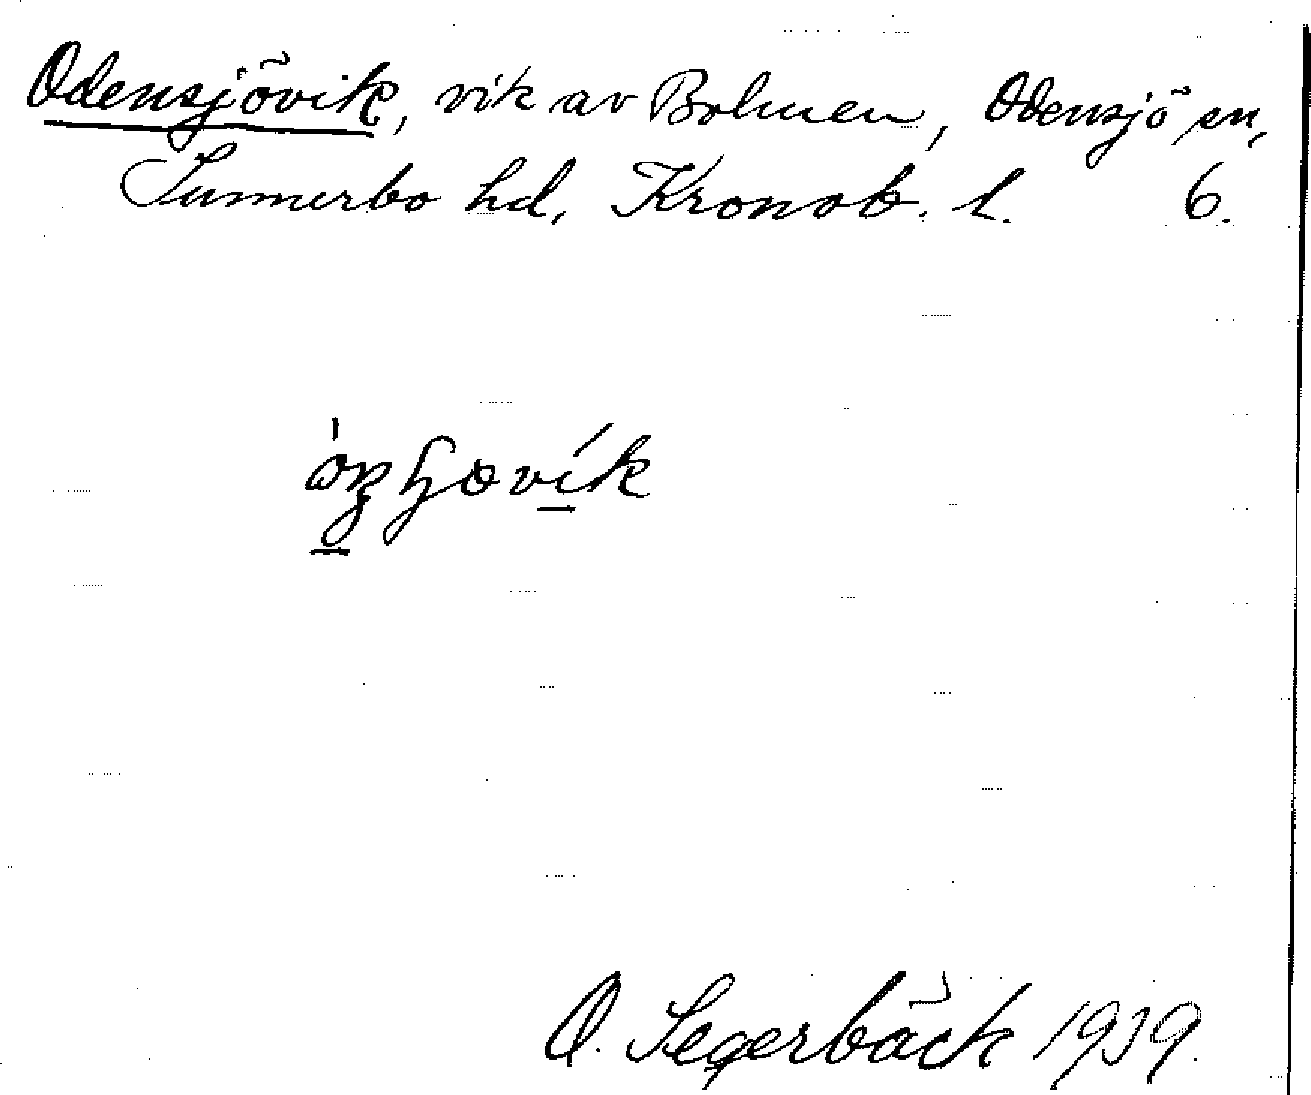 Odensjövik, vik av Bolmen, Odensjö sn,
Sunnerbo hd, Kronob. l. 6.
O. Segerbäck 1939.